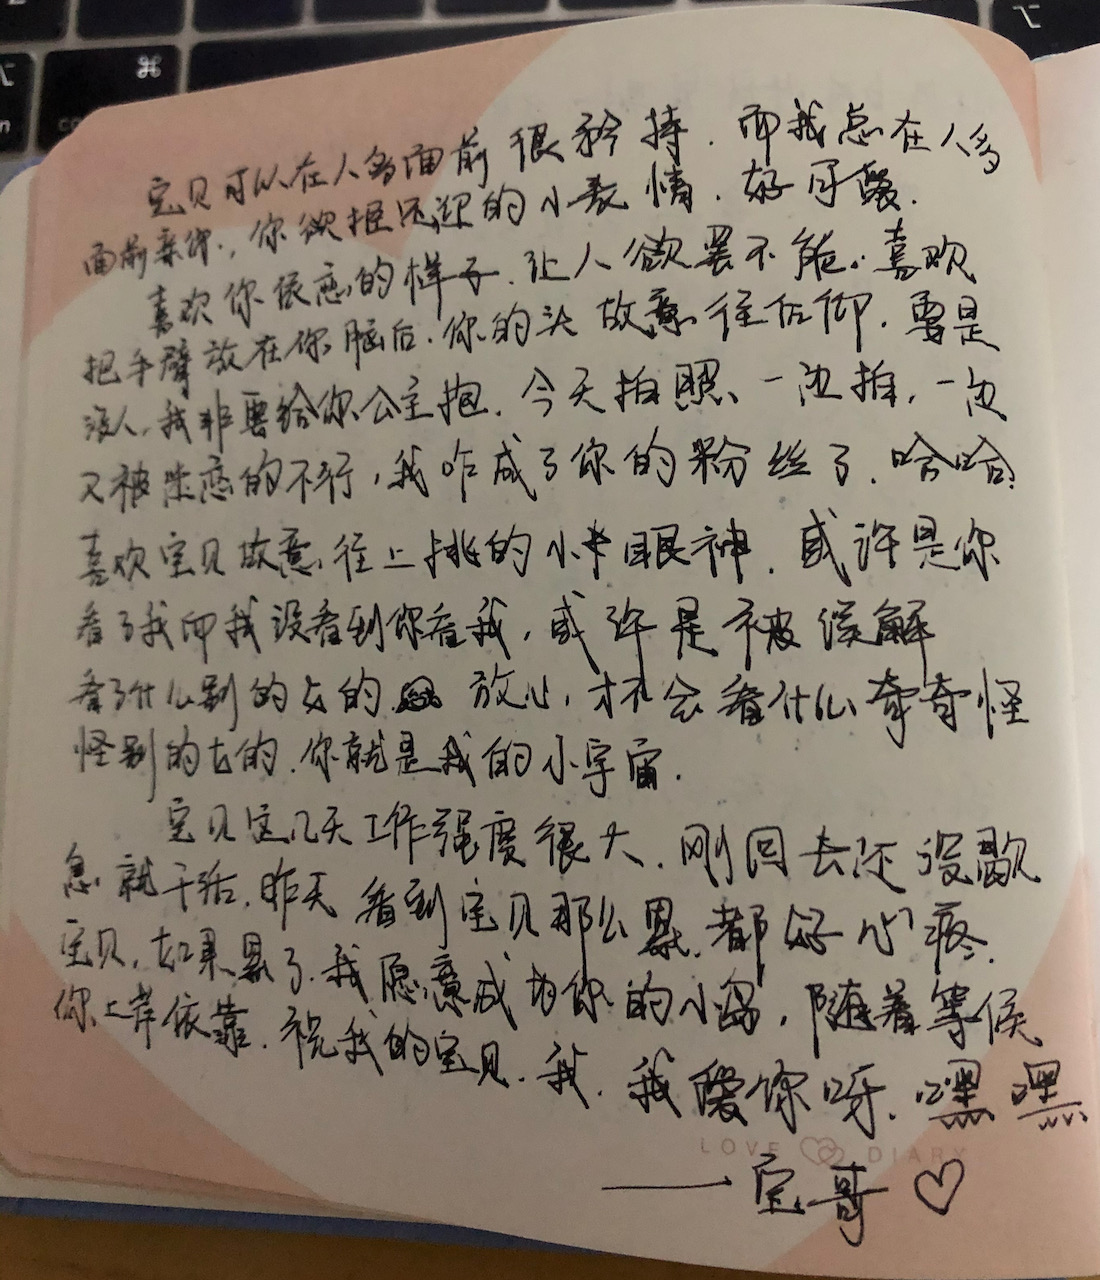 宝贝可以在人多面前很矜持.而我总在人多
面前亲你.,你欲拒还迎的小表情.好可爱.
喜欢你依恋的样子.让人欲罢不能.喜欢
把手臂放在你脑后.你的头故意往后仰.要是
没人,我非要给你公主抱.今天拍照、一边拍,一边
又被迷恋的不行,我咋成了你的粉丝了.哈哈.
喜欢宝贝故意往上挑的小眼神.或许是你
看了我而我没看到你看我,或许是被误解
看了什么别的女的 放心,才不会看什么奇奇怪
怪别的女的.你就是我的小宇宙.
宝贝这几天工作强度很大.刚回去还没歇
息就干活.昨天看到宝贝那么累.都好心疼.
宝贝,如果累了.我愿意成为你的小岛,随着等候
你上岸依靠.祝我的宝贝.我.我爱你呀.嘿嘿
LOVE DIARY
——宝哥♡
⌘
⌥
⌥